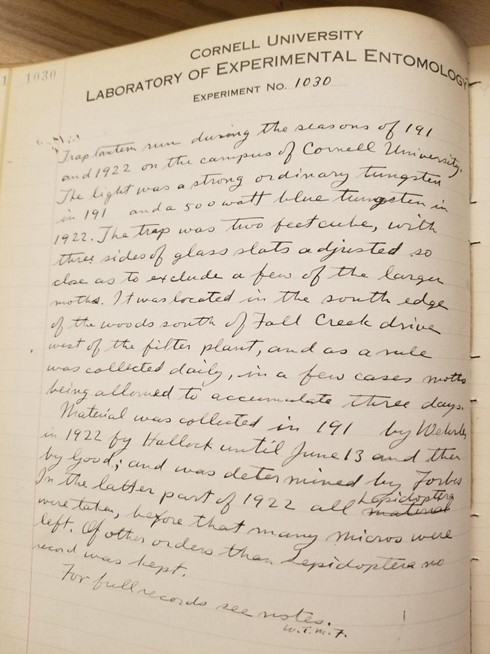 1030
CORNELL UNIVERSITY
LABORATORY OF EXPERIMENTAL ENTOMOLOGY
EXPERIMENT NO. 1030
Trap lantern run during the seasons of 191
and 1922 on the campus of Cornell University.
The light was a strong ordinary tungsten
in 191 and a 500 watt blue tungsten in
1922. The trap was two feet cube, with
three sides of glass slats adjusted so
close as to exclude a few of the larger
moths. It was located in the south edge
of the woods south of Fall Creek drive
west of the filter plant, and as a rule
was collected daily, in a few cases moths
being allowed to accumulate three days.
Material was collected in 191 by
in 1922 by Hallock until June 13 and then
by Good; and was determined by Forbes
In the latter part of 1922 all Lepidoptera material
were taken, before that many micros were
left. Of other orders than Lepidoptera no
record was kept.
For full records see notes.
W.T.M.F.